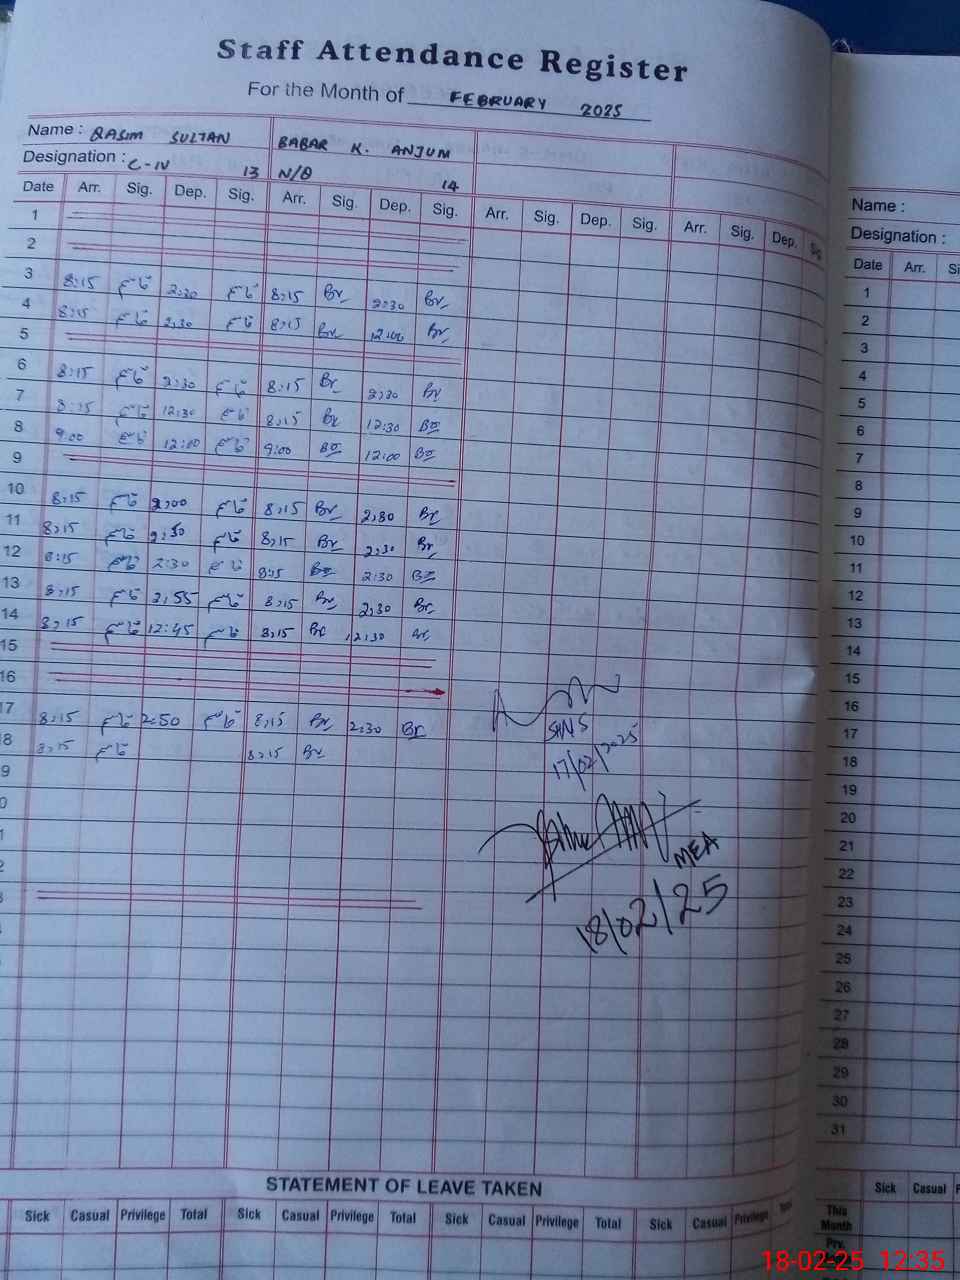 Staff Attendance Register
For the Month of FEBRUARY 2025
Name : QASIM SULTAN BABAR K. ANJUM
Designation : C-IV 13 N/Q 14
Date Arr. Sig. Dep. Sig. Arr. Sig. Dep. Sig. Arr. Sig. Dep. Sig. Arr. Sig. Dep. Sig
1
2
3 8:15 2:30 8:15 Br 2:30 Br
4 8:15 2:30 8:15 Br 12:00 Br
5
6 8:15 2:30 8:15 Br 2:30 Br
7 8:15 12:30 8:15 Br 12:30 Br
8 9:00 12:00 9:00 Br 12:00 Br
9
10 8:15 2:00 8:15 Br 2:30 Br
11 8:15 2:30 8:15 Br 2:30 Br
12 8:15 2:30 8:15 Br 2:30 Br
13 8:15 2:55 8:15 Br 2:30 Br
14 8:15 12:45 8:15 Br 12:30 Br
15
16
17 8:15 2:50 8:15 Br 2:30 Br
8 8:15 8:15 Br
9
0
1
2
3
SHNS
17/02/2025
MEA
18/02/25
STATEMENT OF LEAVE TAKEN
Sick Casual Privilege Total Sick Casual Privilege Total Sick Casual Privilege Total Sick Casual Privilege Total
Name :
Designation :
Date Arr. Si
1
2
3
4
5
6
7
8
9
10
11
12
13
14
15
16
17
18
19
20
21
22
23
24
25
26
27
28
29
30
31
Sick Casual P
This
Month
Prv.
18-02-25 12:35